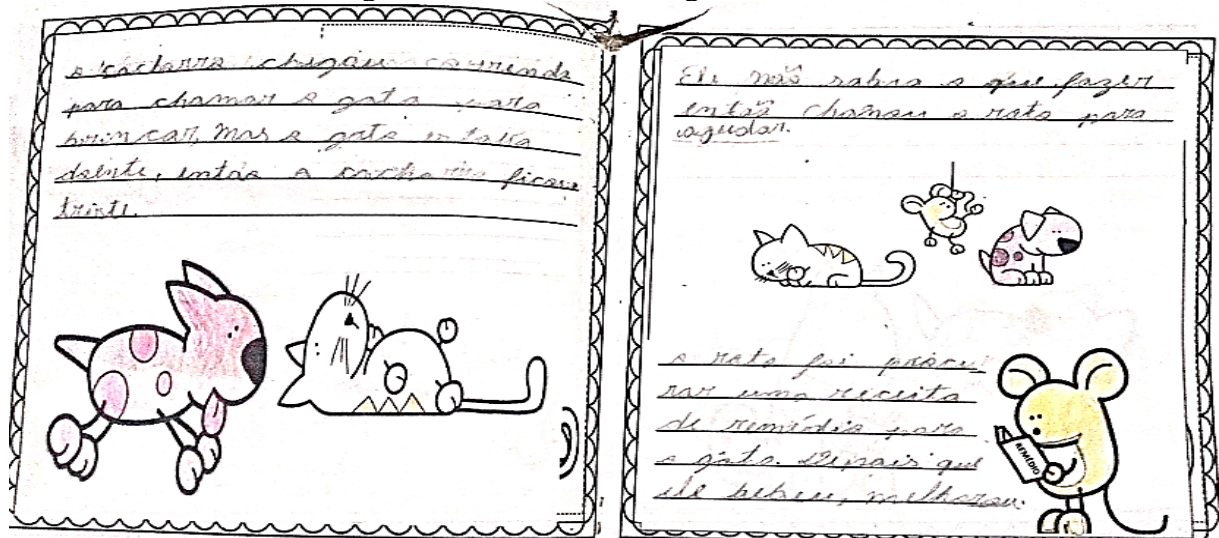 o cachorro chegou correndo
para chamar o gato para
brincar, mas o gato estava
doente, então o cachorro ficou
triste.
Ele não sabia o que fazer
então chamou o rato para
ajudar.
o rato foi procu
rar uma receita
de remédio para
o gato. Depois que
ele bebeu, melhorou.
REMÉDIO